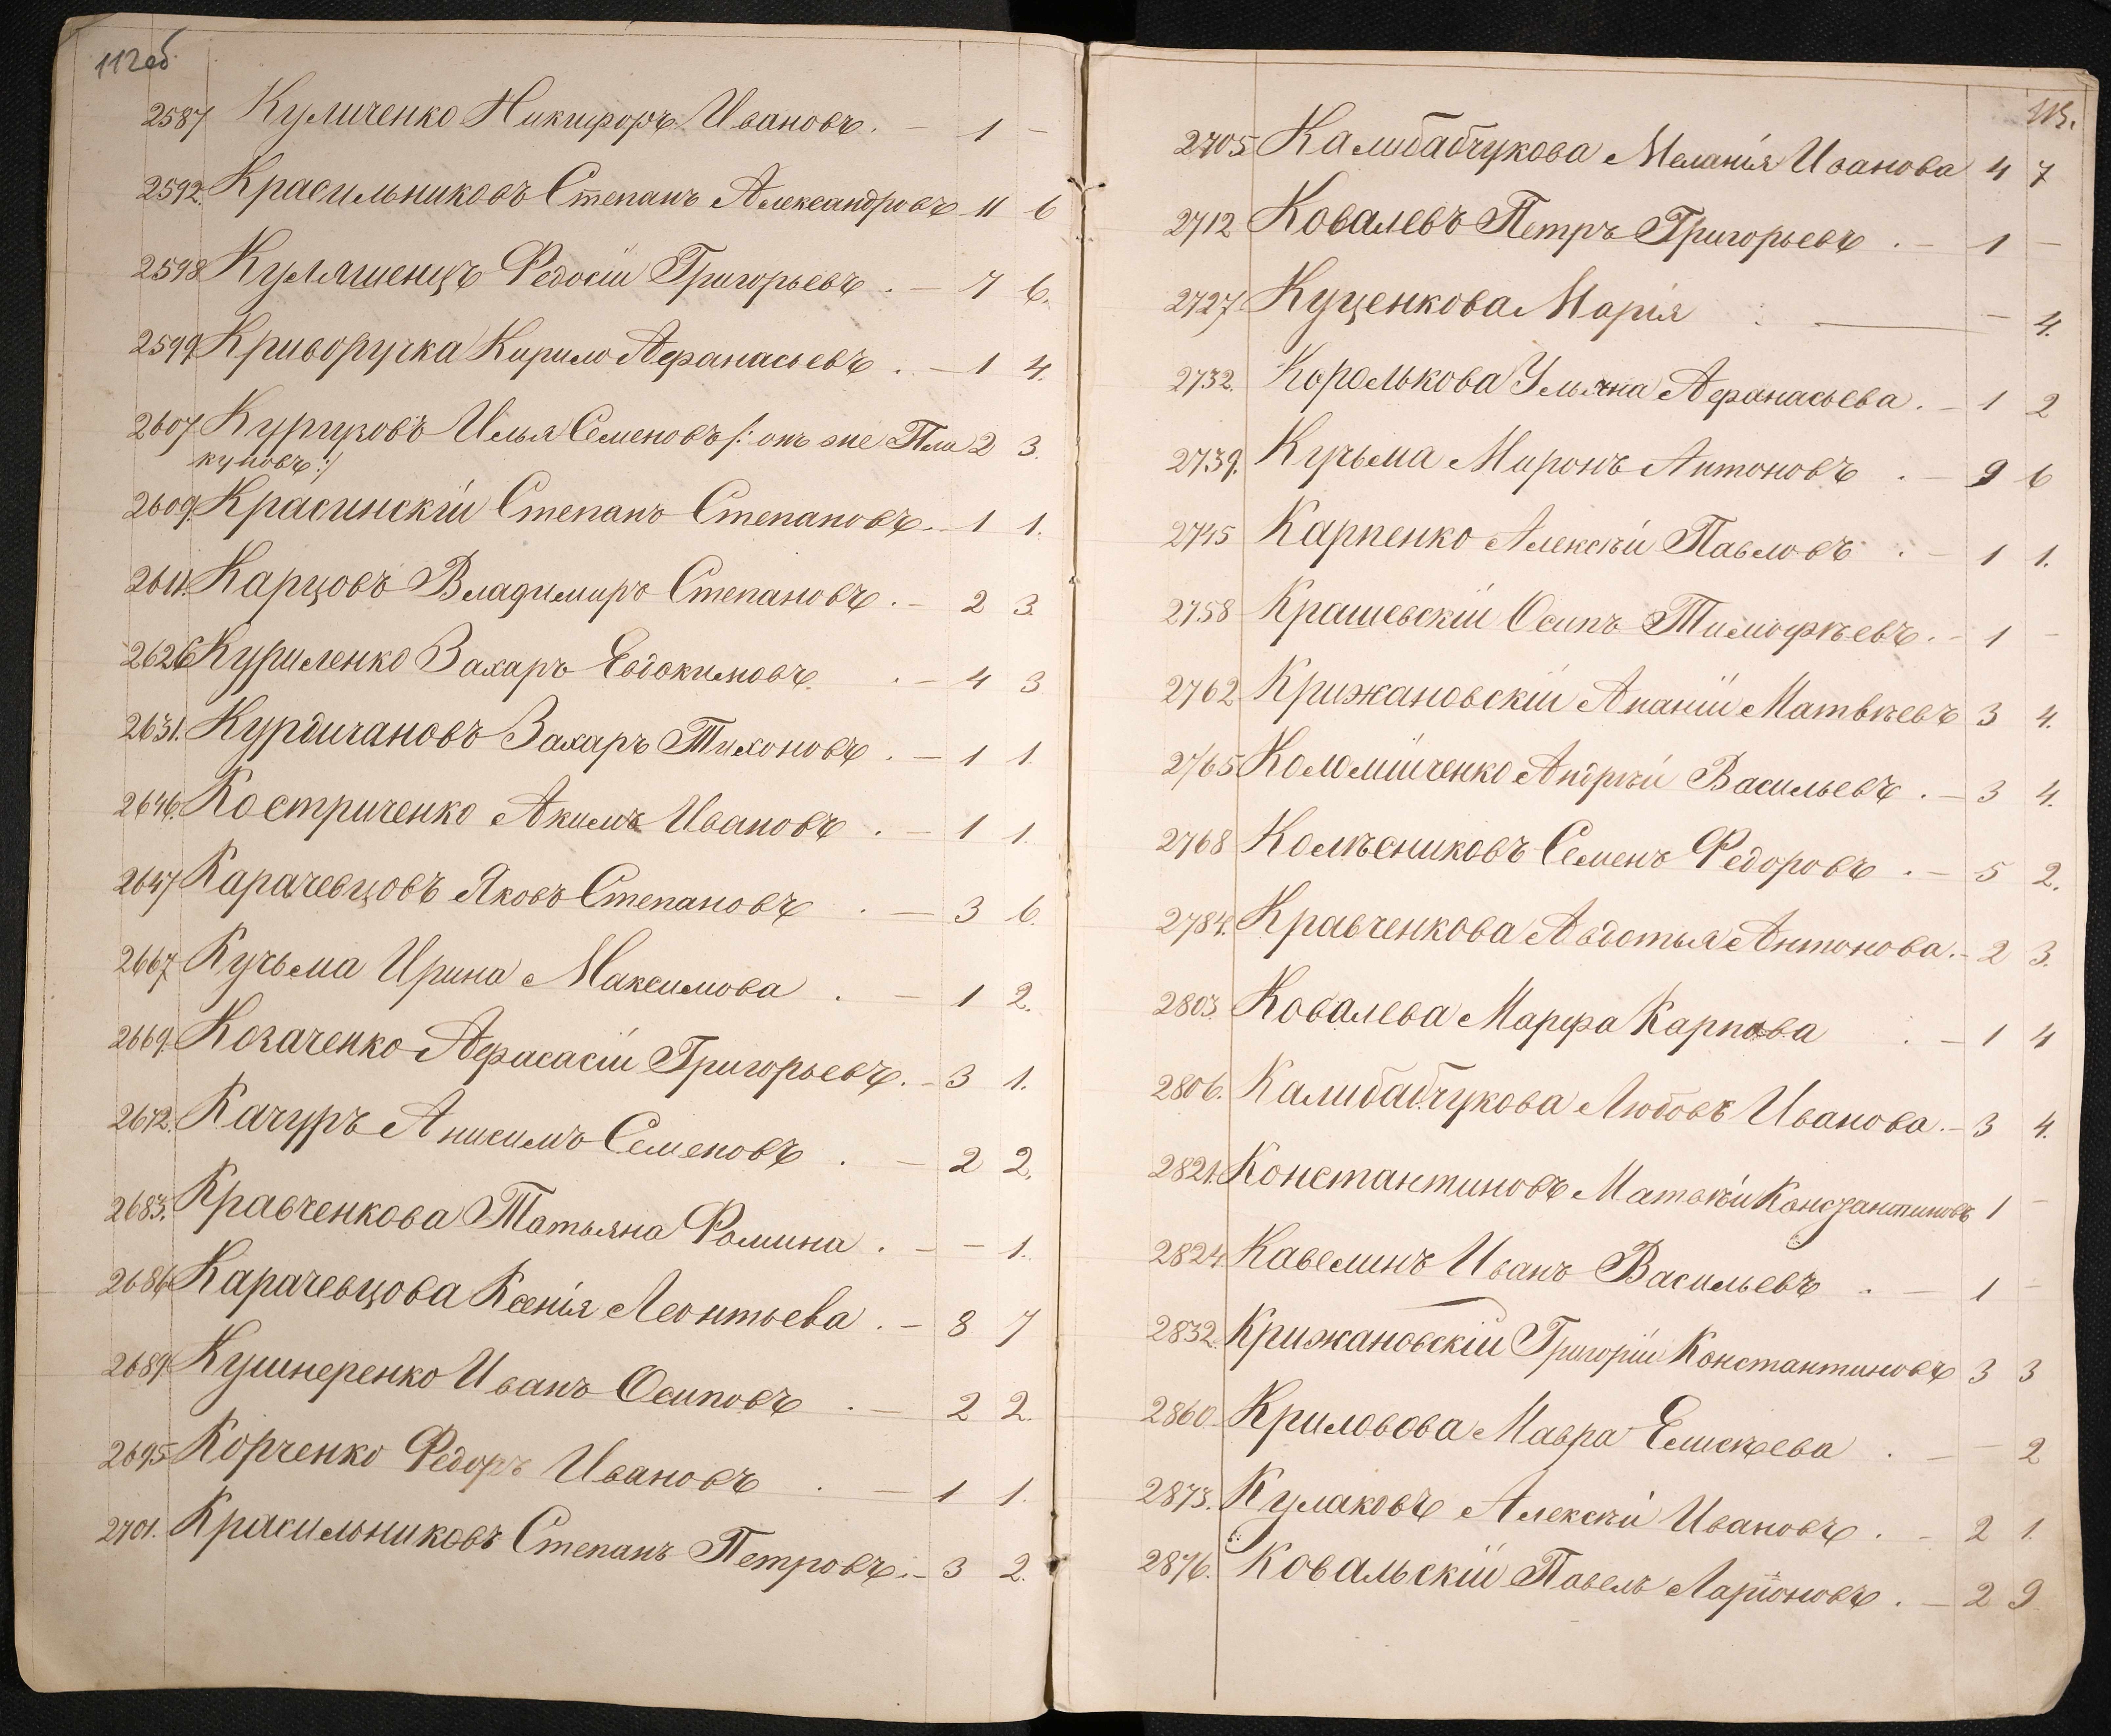 112об
2587 Куличенко Никифоръ Ивановъ. - 1 -
2592. Красильниковъ Степанъ Александровъ 11 6
2598 Кулляшенцъ Федосій Григорьевъ . - 7 6.
2599 Криворучка Кирило Афанасьевъ . - 1 4.
2607 Курцковъ Илья Семеновъ /: онъ же Пла 2 3.
куновъ :/
2609. Красинскій Степанъ Степановъ. - 1 1.
2611. Карцовъ Владимиръ Степановъ . - 2 3.
2626 Куриленко Захаръ Евдокимовъ. . - 4 3
2631. Курдичановъ Захаръ Тихоновъ . - 1 1.
2646. Костриченко Акимъ Ивановъ . - 1 1.
2647 Карачевцовъ Яковъ Степановъ . - 3 6.
2667 Кучьма Ирина Максимова . - 1 2.
2669. Козаченко Афасасій Григорьевъ. - 3 1.
2672. Качуръ Анисимъ Семеновъ . - 2 2.
2683. Кравченкова Татьяна Фомина . - - 1.
2686 Карачевцова Ксенія Леонтьева . - 8 7
2689 Кушнеренко Иванъ Осиповъ . - 2 2.
2695 Корченко Федоръ Ивановъ . - 1 1.
2701. Красильниковъ Степанъ Петровъ. - 3 2.
113.
2705 Калибабчукова Меланія Иванова 4 7
2712 Ковалевъ Петръ Григорьевъ . - 1 -
2727 Куценкова Марія . - - 4.
2732. Королькова Ульяна Афанасьева . - 1 2
2739. Кучьма Миронъ Антоновъ . - 9 6
2745 Карпенко Алексѣй Павловъ . - 1 1.
2758 Крашевскій Осипъ Тимофѣевъ. - 1 -
2762 Крижановскій Ананій Матвѣевъ 3 4.
2765 Коломійченко Андрѣй Васильевъ . - 3 4.
2768 Колѣсниковъ Семенъ Федоровъ . - 5 2.
2784. Кравченкова Авдотья Антонова. - 2 3.
2803. Ковалева Марфа Карпова . - 1 4
2806. Калибабчукова Любовь Иванова. - 3 4.
2821. Константиновъ Матвѣй Константиновъ 1 -
2824 Кавелинъ Иванъ Васильевъ . - 1 -
2832. Крижановскій Григорій Константиновъ 3 3
2860. Криловова Мавра Елисѣева . - - 2
2873. Кулаковъ Алексѣй Ивановъ . - 2 1.
2876. Ковальскій Павелъ Ларіоновъ . - 2 9